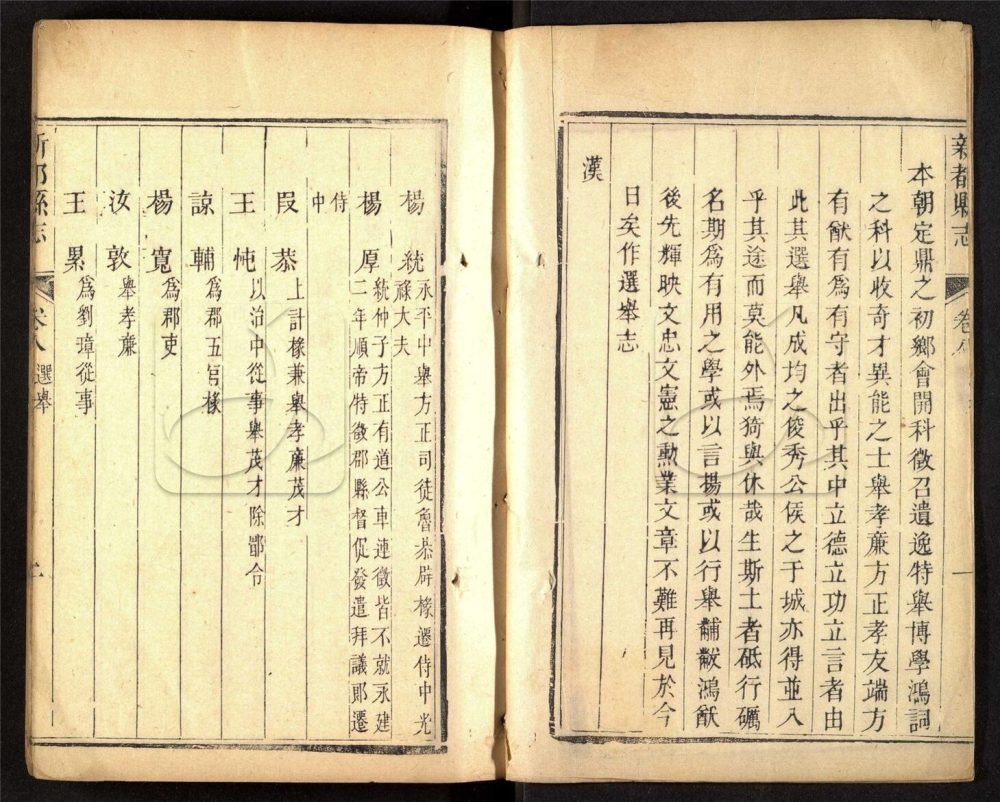 新都縣志
卷八
一
本朝定鼎之初鄉會開科徵召遺逸特舉博學鴻詞
之科以收奇才異能之士舉孝廉方正孝友端方
有猷有為有守者出乎其中立德立功立言者由
此其選舉凡成均之俊秀公侯之于城亦得並入
乎其途而莫能外焉猗與休哉生斯土者砥行礪
名期為有用之學或以言揚或以行舉黼黻鴻猷
後先輝映文忠文憲之勳業文章不難再見於今
日矣作選舉志
漢
楊統永平中舉方正司徒魯恭辟椽遷侍中光
祿大夫
楊厚統仲子方正有道公車連徵皆不就永建
二年順帝特徵郡縣督促發遣拜議郎遷
侍
中
段恭上計椽兼舉孝廉茂才
王忳以治中從事舉茂才除郿令
諒輔為郡五官椽
楊寬為郡吏
汝敦舉孝廉
王累為劉璋從事
新都縣志
卷八
選舉